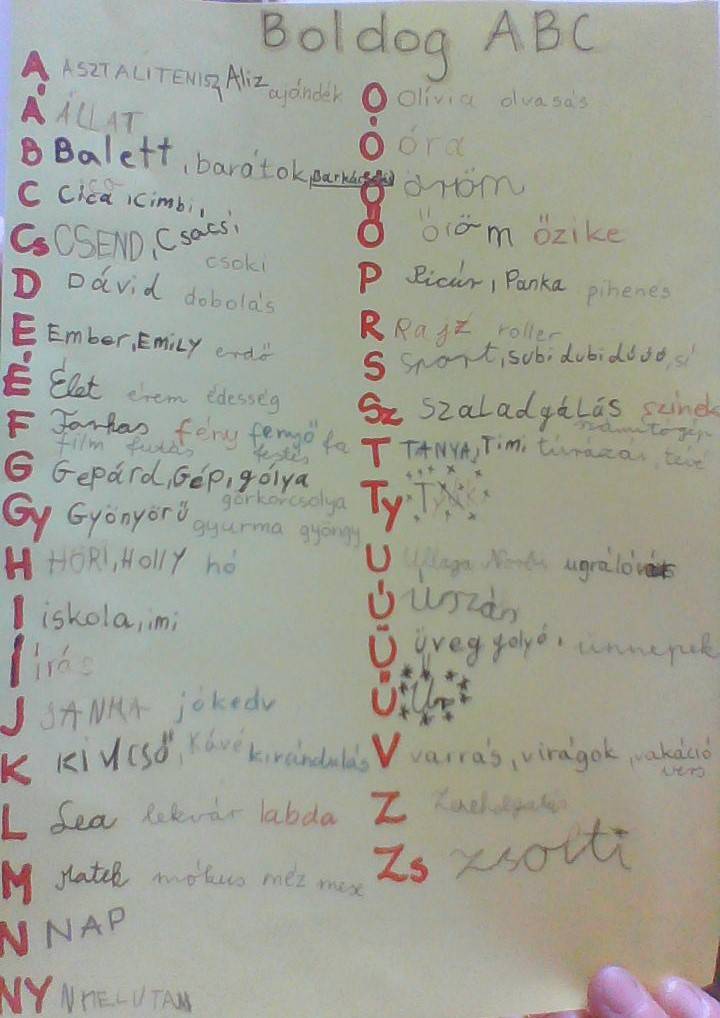 Boldog ABC
A ASZTALITENISZ Aliz ajándék
Á ÁLLAT
B Balett, barátok, Barkácsolás
C Cica, Cimbi,
Cs CSEND, Csacsi
csoki
D Dávid dobolás
E Ember, EMILY erdő
É Élet érem édesség
F Farkas fény fenyőfa
film futás festés
G Gepárd, Gép, gólya
görkorcsolya
Gy Gyönyörű gyurma gyöngy
H HÓRI, HOLLY hó
I iskola, imi
Í írás
J JANKA jókedv
K KIVCSŐ, Kávé kirándulás
L Lea lekvár labda
M Matek mókus méz mese
N NAP
NY NYELVTAN
O Olívia olvasás
Ó óra
Ö öröm
Ő öröm őzike
P Picúr, Panka pihenés
R Rajz roller
S Sport, subidubidúúú, sí
Sz szaladgálás színek
számítógép
T TANYA, Timi túrázás, tévé
Ty TYÚK
U ugráló
Ú Úszás
Ü üveggolyó, ünnepek
Ű Űr
V varrás, virágok, vakáció
vers
Z
Zs zsolti